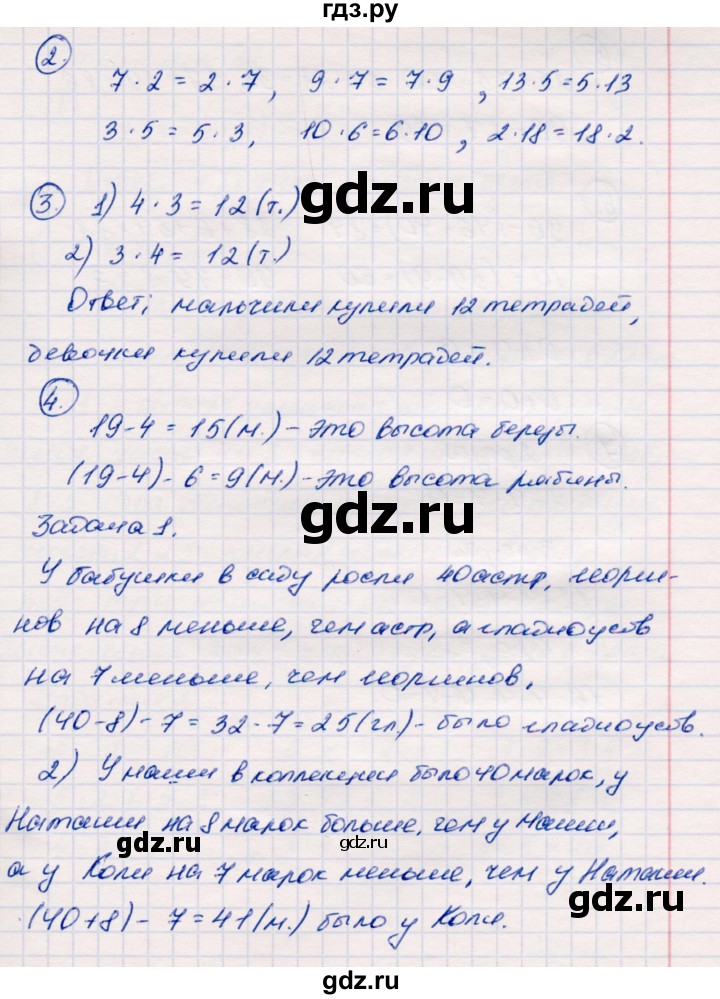 гдз.ру
2.
7 · 2 = 2 · 7, 9 · 7 = 7 · 9, 13 · 5 = 5 · 13
3 · 5 = 5 · 3, 10 · 6 = 6 · 10, 2 · 18 = 18 · 2.
3. 1) 4 · 3 = 12 (т.)
gdz.ru
2) 3 · 4 = 12 (т.)
Ответ: мальчики купили 12 тетрадей,
девочки купили 12 тетрадей.
4.
19 - 4 = 15 (м.) - это высота березы.
(19 - 4) - 6 = 9 (м.) - это высота рябины.
gdz.ru
Задача 1.
У бабушки в саду росли 40 астр, георги-
нов на 8 меньше, чем астр, а гладиолусов
на 7 меньше, чем георгинов.
(40 - 8) - 7 = 32 - 7 = 25 (гл) - было
2) У Маши в коллекции было 40 марок, у
Наташи на 8 марок больше, чем у Маши,
gdz.ru
gdz.ru
а у Коли на 7 марок меньше, чем у Наташи.
gdz.ru
(40 + 8) - 7 = 41 (м.) было у Коли.
gdz.ru